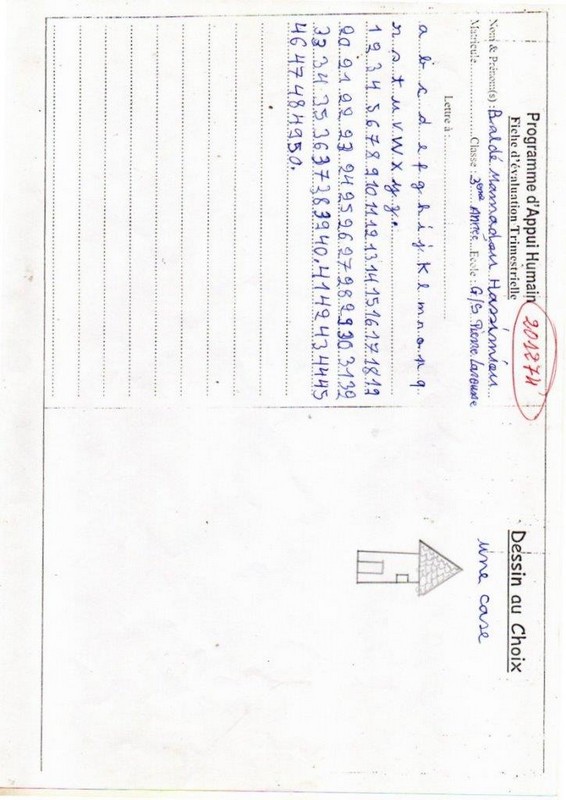 Programme d'Appui Humain
Fiche d'évaluation Trimestrielle
201274
Nom & Prénom(s) : Baldé Mamadou Hassimiou
Matricule ............ Classe : 3ème Année Ecole : G/S Pierre Larousse
Lettre à : ............
a b c d e f g h i j k l m n o n q
n s t u v W X y z.
1 2 3 4 5 6 7 8 9 10 11 12 13 14 15 16 17 18 19
20 21 22 23 24 25 26 27 28 29 30 31 32
33 34 35 36 37 38 39 40. 41 42 43 44 45
46 47 48 49 50.
Dessin au Choix
une case